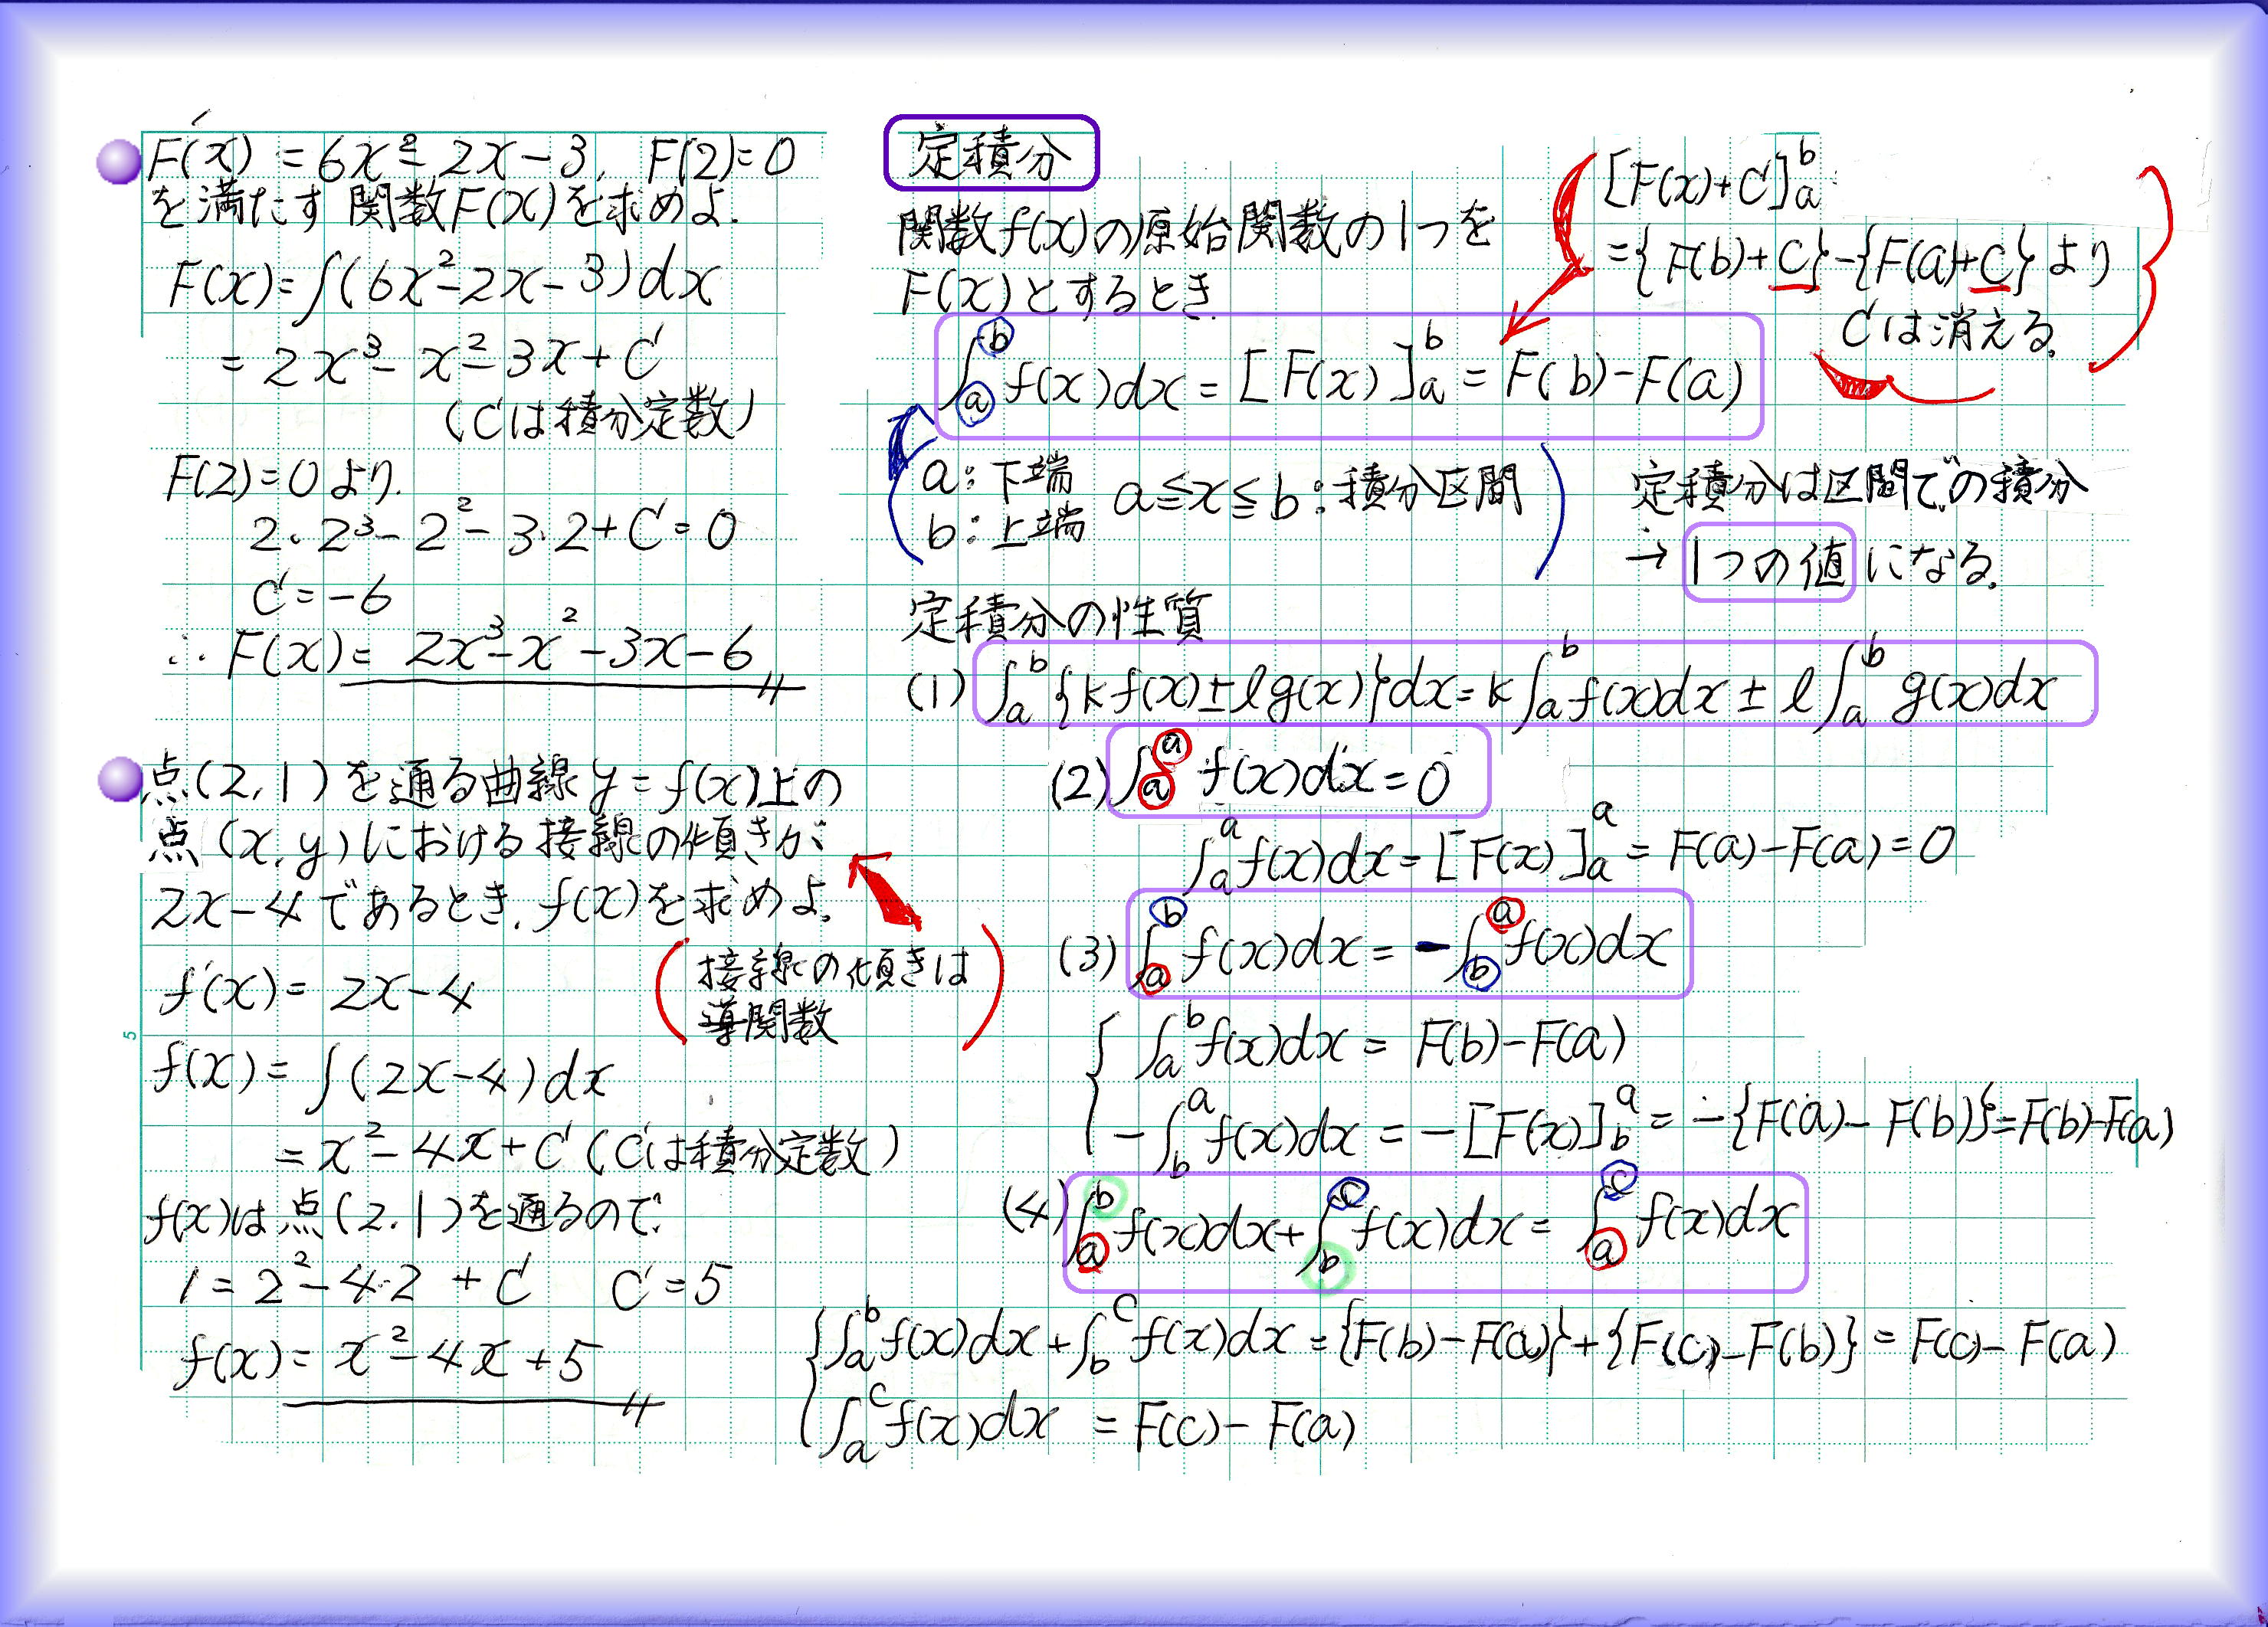 F'(x) = 6x² - 2x - 3, F(2) = 0
を満たす関数F(x)を求めよ.
F(x) = ∫(6x² - 2x - 3)dx
= 2x³ - x² - 3x + C
(Cは積分定数)
F(2) = 0 より.
2・2³ - 2² - 3・2 + C = 0
C = -6
∴ F(x) = 2x³ - x² - 3x - 6
点(2, 1)を通る曲線 y = f(x)上の
点(x, y)における接線の傾きが
2x - 4であるとき, f(x)を求めよ.
(接線の傾きは
導関数)
f'(x) = 2x - 4
f(x) = ∫(2x - 4)dx
= x² - 4x + C (Cは積分定数)
f(x)は点(2, 1)を通るので.
1 = 2² - 4・2 + C C = 5
f(x) = x² - 4x + 5
5
定積分
関数f(x)の原始関数の1つを
F(x)とするとき
∫_a^b f(x)dx = [F(x)]_a^b = F(b) - F(a)
[F(x)+C]_a^b
={F(b)+C}-{F(a)+C}より
Cは消える.
a:下端
b:上端
a≦x≦b:積分区間
定積分は区間での積分
→ 1つの値になる.
定積分の性質
(1) ∫_a^b {kf(x)±lg(x)}dx = k∫_a^b f(x)dx ± l∫_a^b g(x)dx
(2) ∫_a^a f(x)dx = 0
∫_a^a f(x)dx = [F(x)]_a^a = F(a) - F(a) = 0
(3) ∫_a^b f(x)dx = -∫_b^a f(x)dx
∫_a^b f(x)dx = F(b) - F(a)
-∫_b^a f(x)dx = -[F(x)]_b^a = -{F(a) - F(b)} = F(b) - F(a)
(4) ∫_a^b f(x)dx + ∫_b^c f(x)dx = ∫_a^c f(x)dx
∫_a^b f(x)dx + ∫_b^c f(x)dx = {F(b) - F(a)} + {F(c) - F(b)} = F(c) - F(a)
∫_a^c f(x)dx = F(c) - F(a)